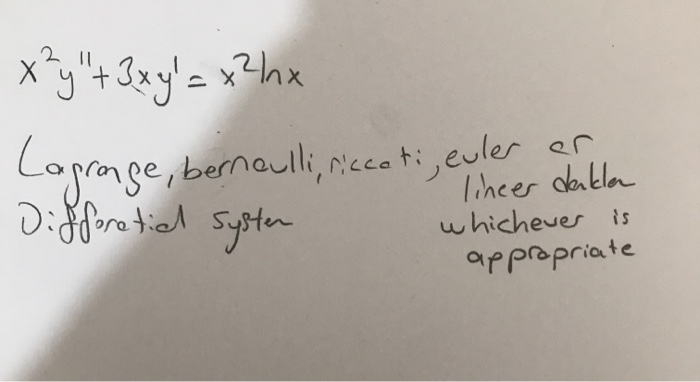 x²y"+3xy'=x²lnx
Lagrange, bernoulli, riccati, euler or
lineer
Differatial system
whichever is
appropriate